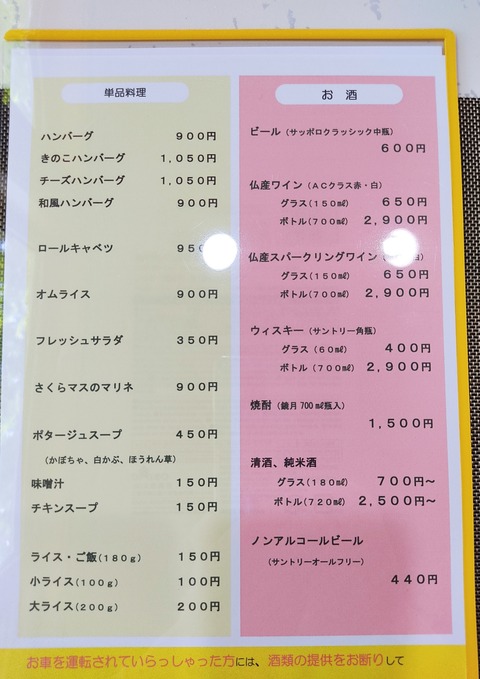 単品料理
ハンバーグ 900円
きのこハンバーグ 1,050円
チーズハンバーグ 1,050円
和風ハンバーグ 900円
ロールキャベツ
オムライス 900円
フレッシュサラダ 350円
さくらマスのマリネ 900円
ポタージュスープ 450円
（かぼちゃ、白かぶ、ほうれん草）
味噌汁 150円
チキンスープ 150円
ライス・ご飯(180g) 150円
小ライス(100g) 100円
大ライス(200g) 200円
お 酒
ビール（サッポロクラッシック中瓶）
600円
仏産ワイン（ACクラス赤・白）
グラス(150㎖) 650円
ボトル(700㎖) 2,900円
仏産スパークリングワイン
グラス(150㎖) 650円
ボトル(700㎖) 2,900円
ウィスキー（サントリー角瓶）
グラス（60㎖） 400円
ボトル（700㎖） 2,900円
焼酎（鏡月700㎖瓶入）
1,500円
清酒、純米酒
グラス(180㎖) 700円～
ボトル(720㎖) 2,500円～
ノンアルコールビール
（サントリーオールフリー）
440円
お車を運転されていらっしゃった方には、酒類の提供をお断りして